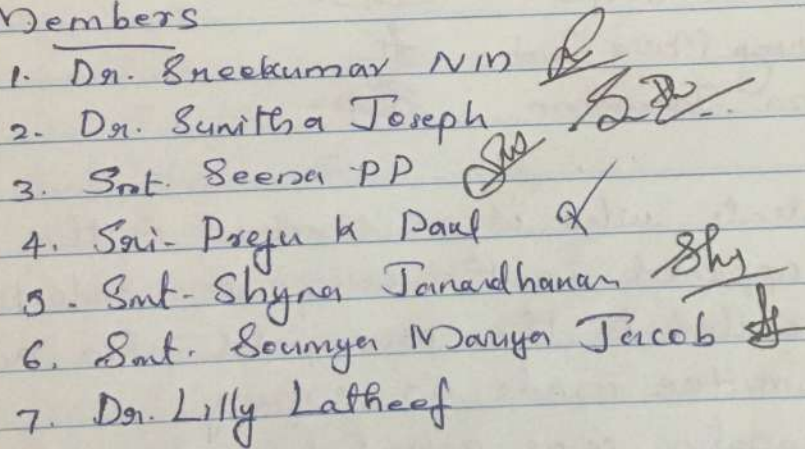 Members
1. Dr. Sreekumar NM
2. Dr. Sunitha Joseph
3. Smt. Seena PP
4. Sri. Preju K Paul
5. Smt. Shyna Janardhanan Shy
6. Smt. Soumya Mariya Jacob
7. Dr. Lilly Latheef